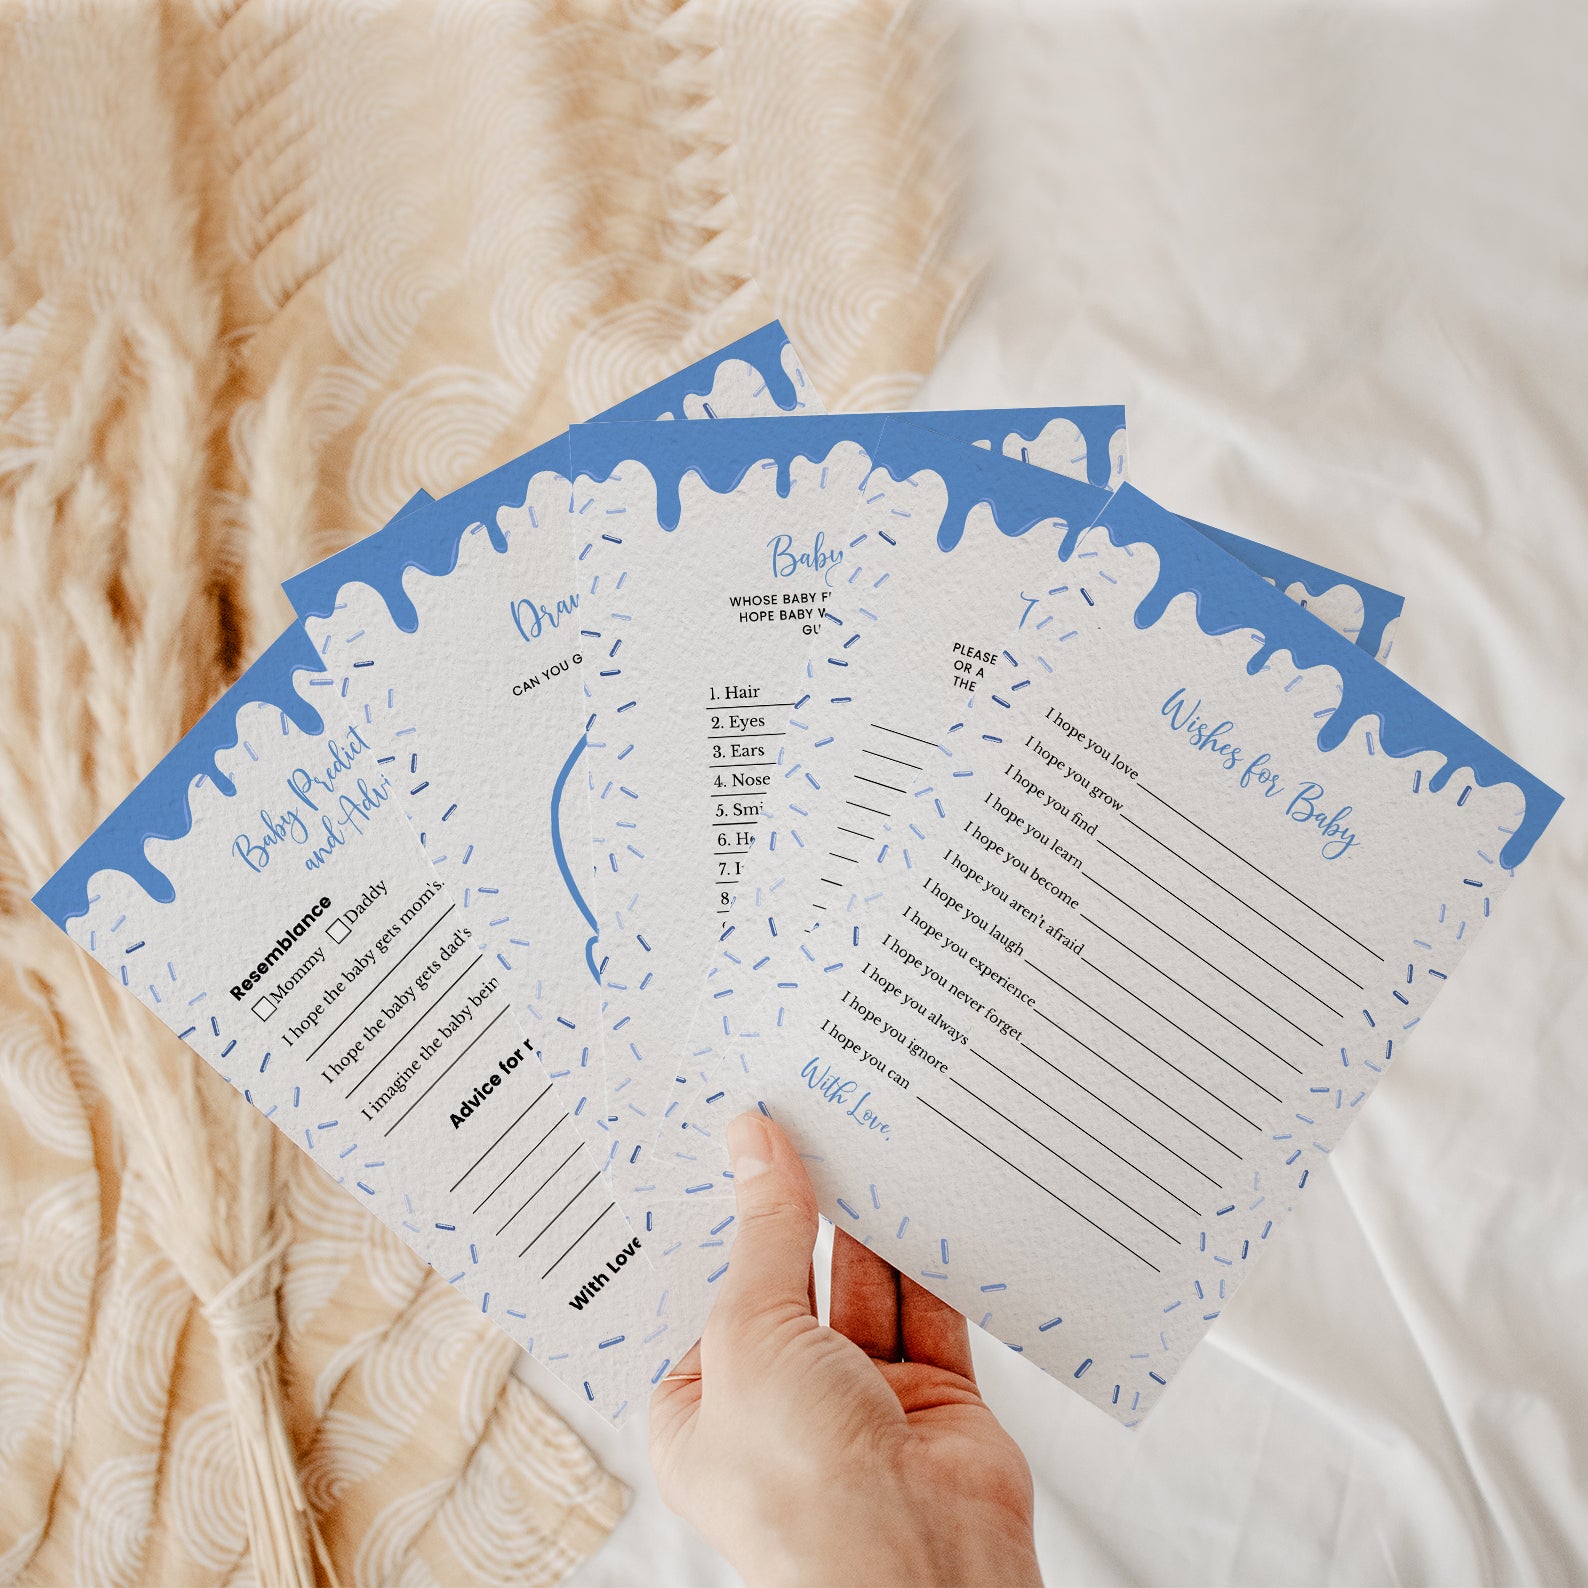 Baby Predict
and Advi
Resemblance
Mommy Daddy
I hope the baby gets mom's.
I hope the baby gets dad's
I imagine the baby bein
Advice for
With Love
Draw
CAN YOU G
Baby
WHOSE BABY F
HOPE BABY W
GU
1. Hair
2. Eyes
3. Ears
4. Nose
5. Smi
6. He
7.
8.
PLEASE
OR A
THE
Wishes for Baby
I hope you love
I hope you grow
I hope you find
I hope you learn
I hope you become
I hope you aren't afraid
I hope you laugh
I hope you experience
I hope you never forget
I hope you always
I hope you ignore
I hope you can
With Love,